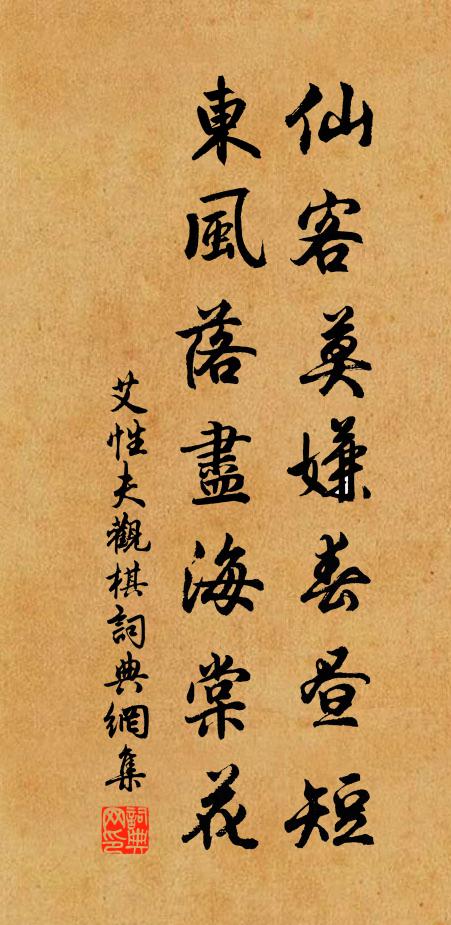 仙客莫嫌春昼短
東風落盡海棠花
艾性夫觀棋詞典網集
詞典網印